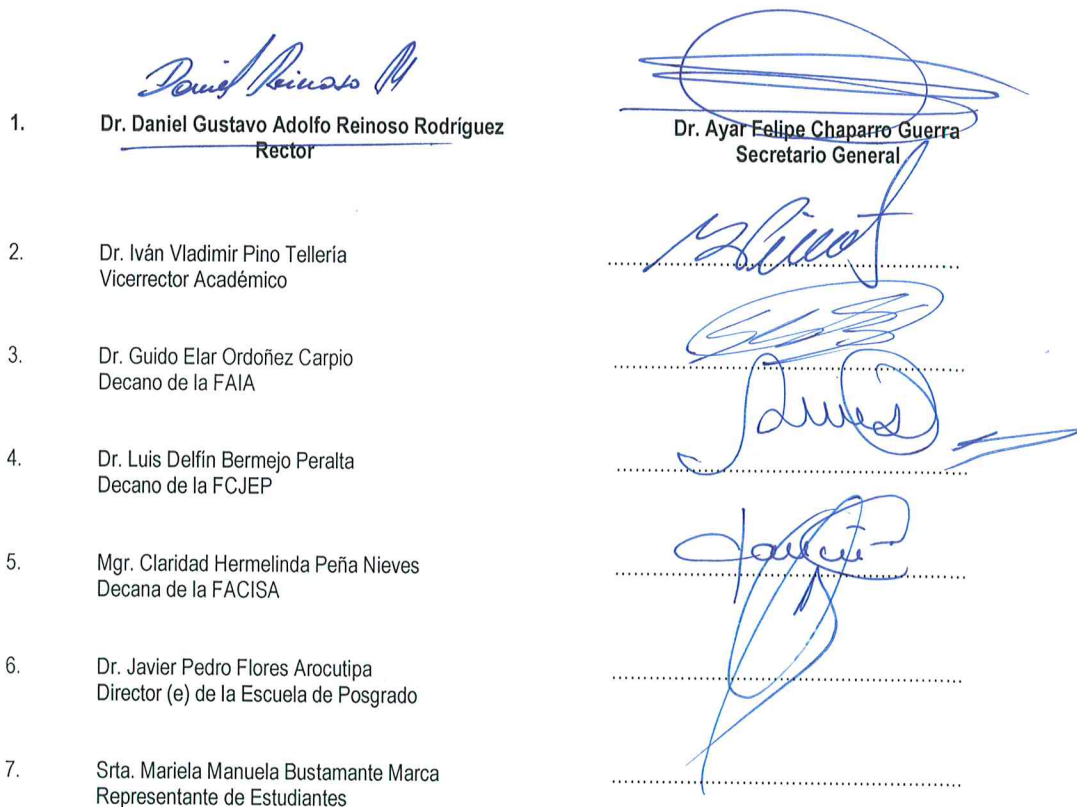 Daniel Reinoso
1. Dr. Daniel Gustavo Adolfo Reinoso Rodríguez
Rector
Dr. Ayar Felipe Chaparro Guerra
Secretario General
2. Dr. Iván Vladimir Pino Tellería
Vicerrector Académico
3. Dr. Guido Elar Ordoñez Carpio
Decano de la FAIA
4. Dr. Luis Delfín Bermejo Peralta
Decano de la FCJEP
5. Mgr. Claridad Hermelinda Peña Nieves
Decana de la FACISA
6. Dr. Javier Pedro Flores Arocutipa
Director (e) de la Escuela de Posgrado
7. Srta. Mariela Manuela Bustamante Marca
Representante de Estudiantes